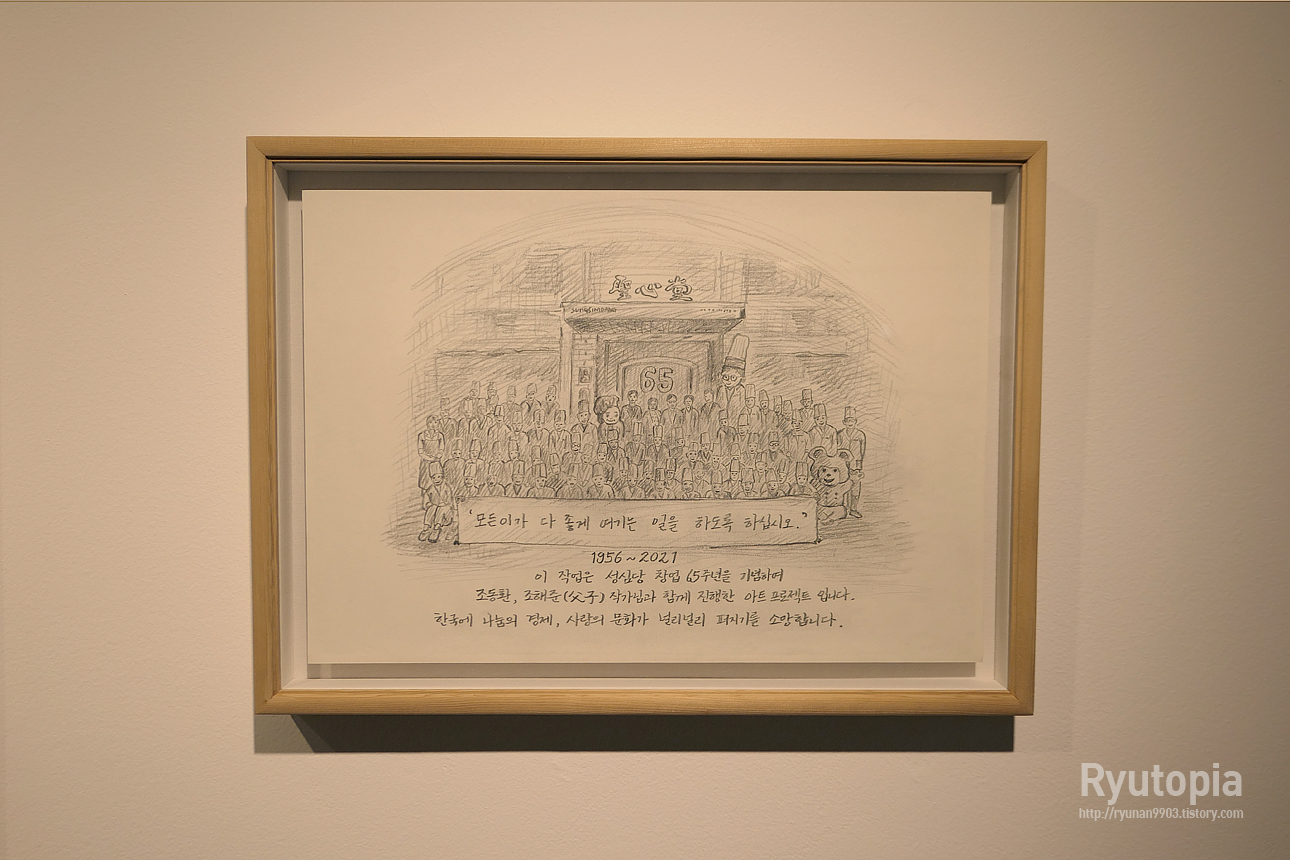 聖心堂
SUNGSIMDANG
65
'모든이가 다 좋게 여기는 일을 하도록 하십시오.'
1956~2021
이 작업은 성심당 창업 65주년을 기념하여
조동환, 조해준(父子) 작가님과 함께 진행한 아트프로젝트 입니다.
한국에 나눔의 경제, 사랑의 문화가 널리널리 퍼지기를 소망합니다.
Ryutopia
http://ryunan9903.tistory.com